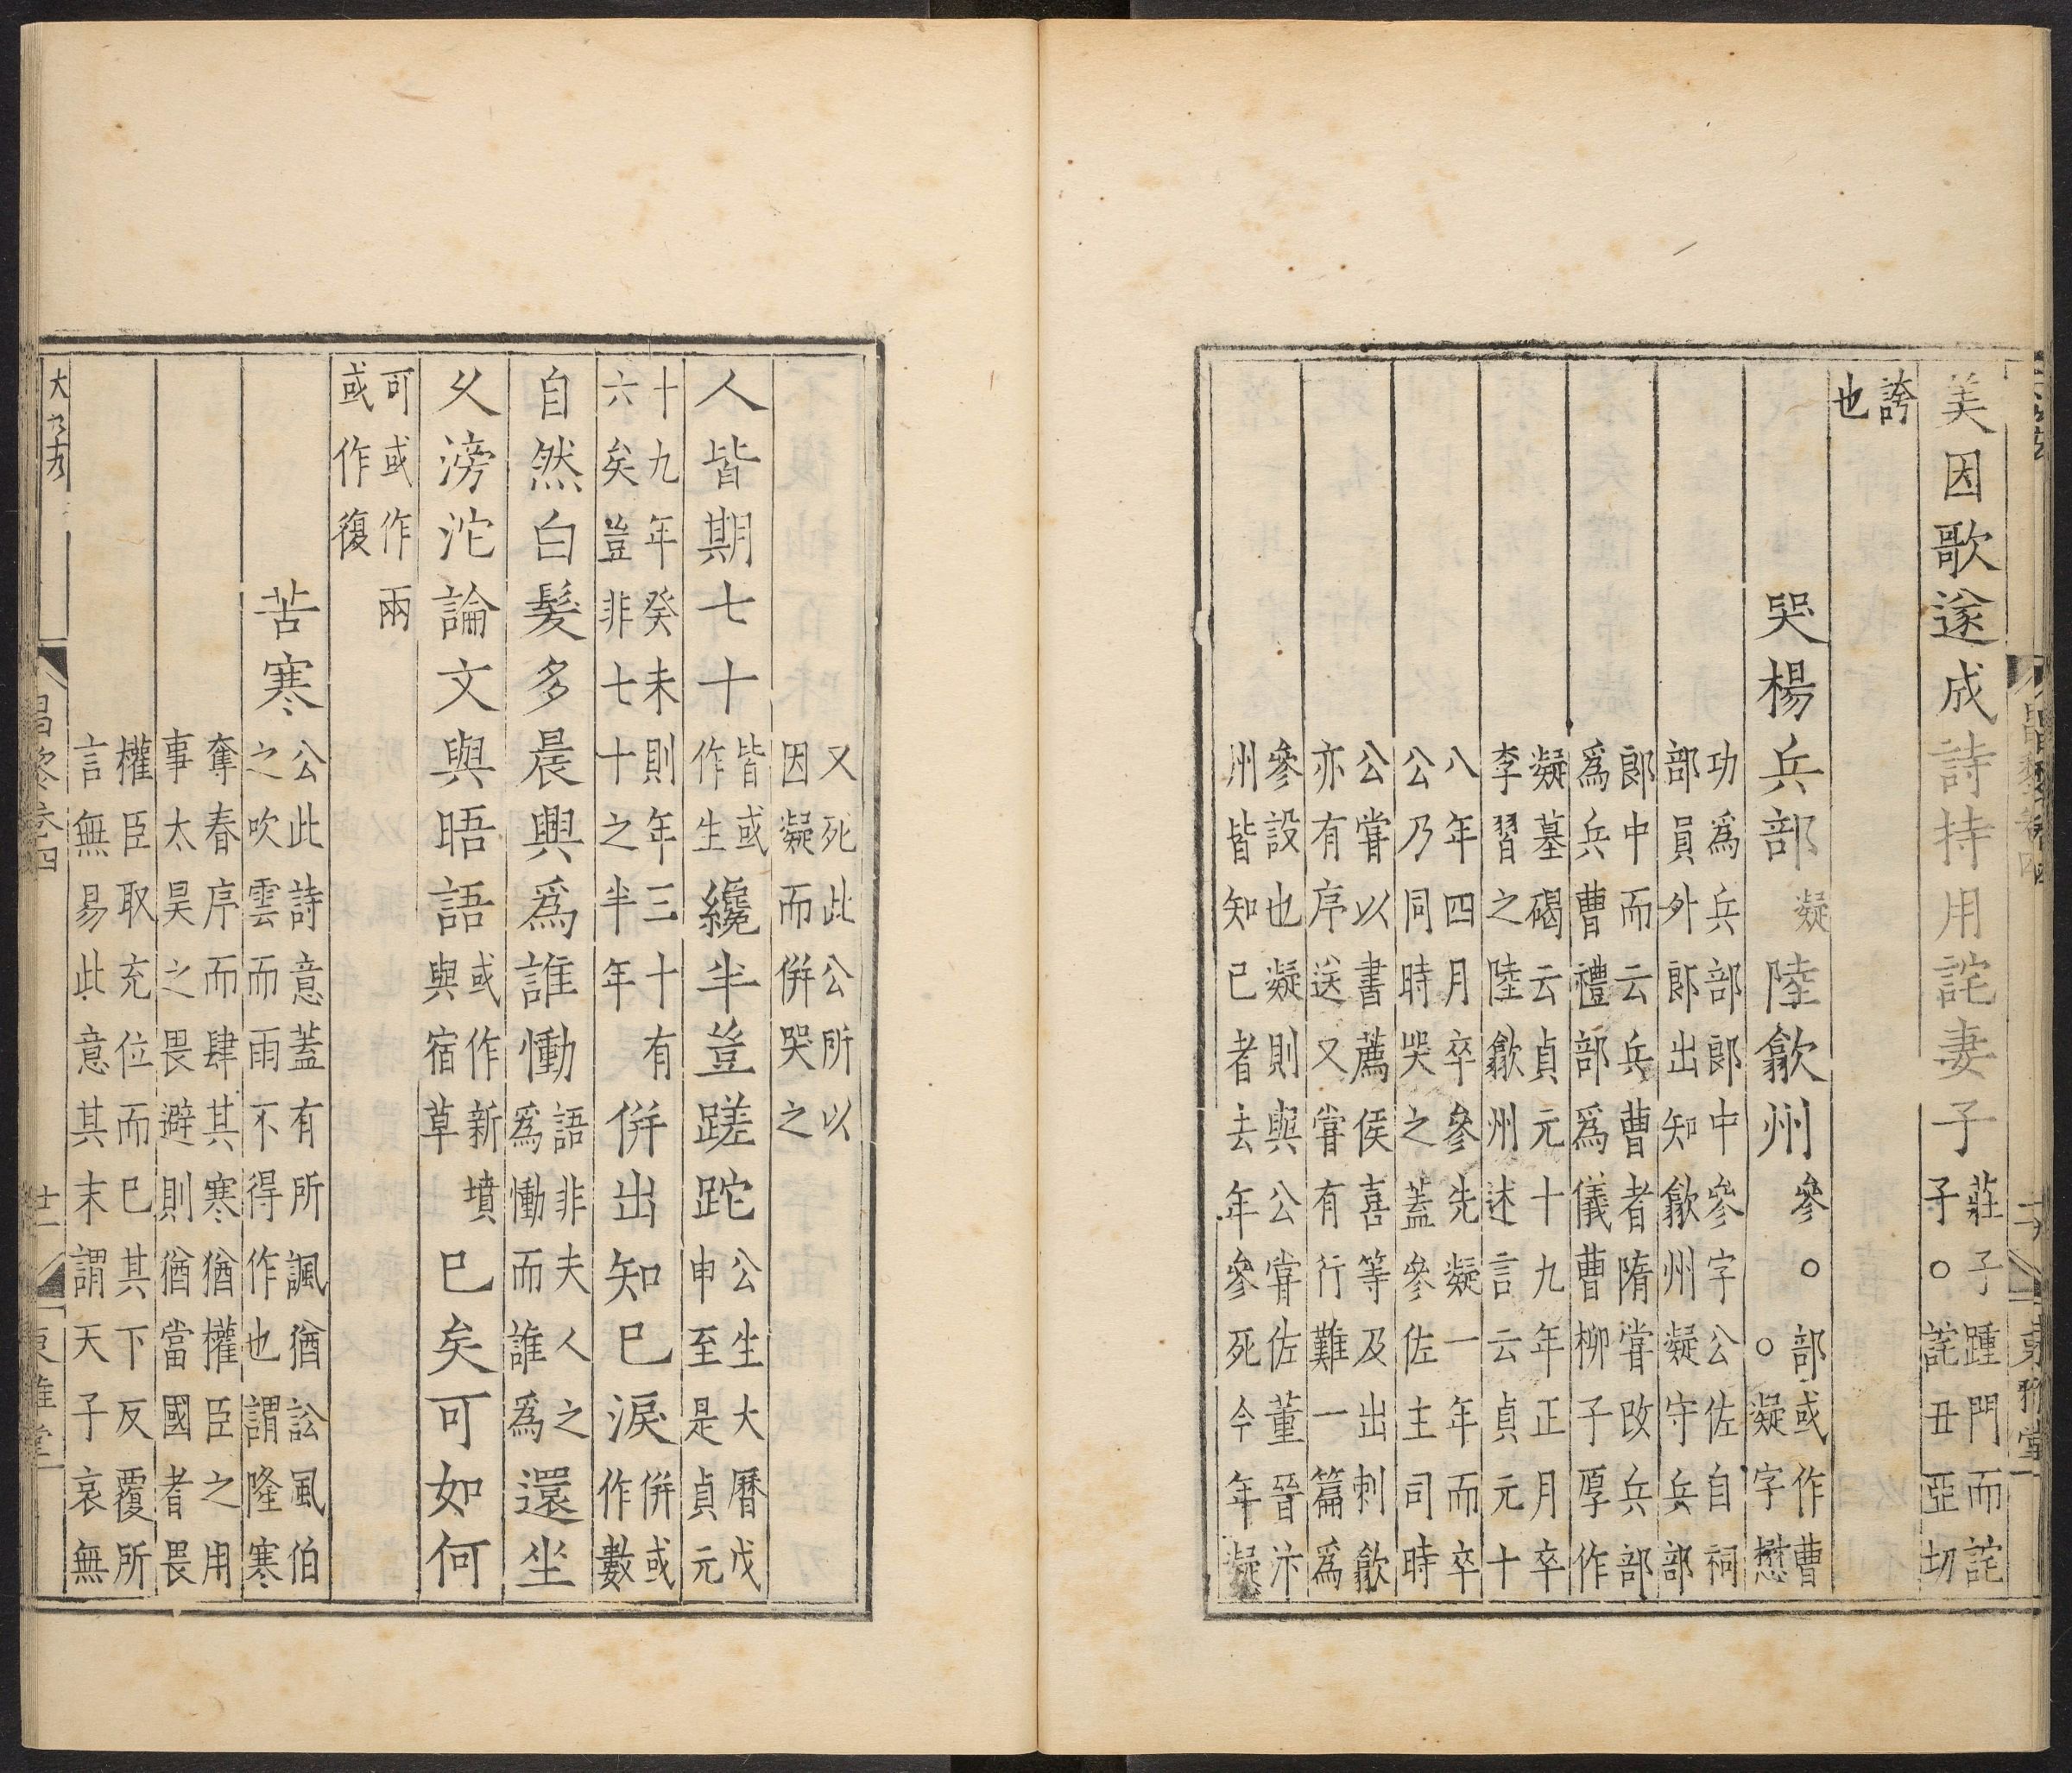 美因歌遂成詩持用詫妻子莊子踵門而詫
子○詫丑亞切
誇
也
哭楊兵部凝陸歙州參○部或作曹
○凝字懋
功爲兵部郎中參字公佐自祠
部員外郎出知歙州凝守兵部
郎中而云兵曹者隋嘗改兵部
爲兵曹禮部爲儀曹柳子厚作
凝墓碣云貞元十九年正月卒
李習之陸歙州述言云貞元十
八年四月卒參先凝一年而卒
公乃同時哭之蓋參佐主司時
公嘗以書薦侯喜等及出刺歙
亦有序送又嘗有行難一篇爲
參設也凝則與公嘗佐董晉汴
州皆知已者去年參死今年凝
又死此公所以
因凝而併哭之
人皆期七十皆或
作生纔半豈蹉跎公生大曆戊
申至是貞元
十九年癸未則年三十有
六矣豈非七十之半年併出知巳淚併或
作數
自然白髮多晨興爲誰慟語非夫人之
爲慟而誰爲還坐
乆滂沱論文與晤語或作新墳
與宿草巳矣可如何
可或作兩
或作復
苦寒公此詩意蓋有所諷猶訟風伯
之吹雲而雨不得作也謂隆寒
奪春序而肆其寒猶權臣之用
事太昊之畏避則猶當國者畏
權臣取充位而巳其下反覆所
言無易此意其末謂天子哀無
昌黎卷四
廿一
東雅堂